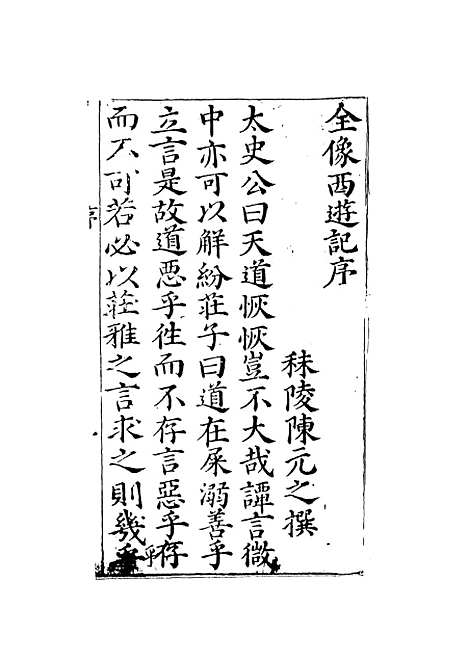 全像西遊記序
秣陵陳元之撰
太史公曰天道恢恢豈不大哉譚言微
中亦可以解紛莊子曰道在屎溺善乎
立言是故道惡乎徃而不存言惡乎存
而不可若必以莊雅之言求之則幾乎
序